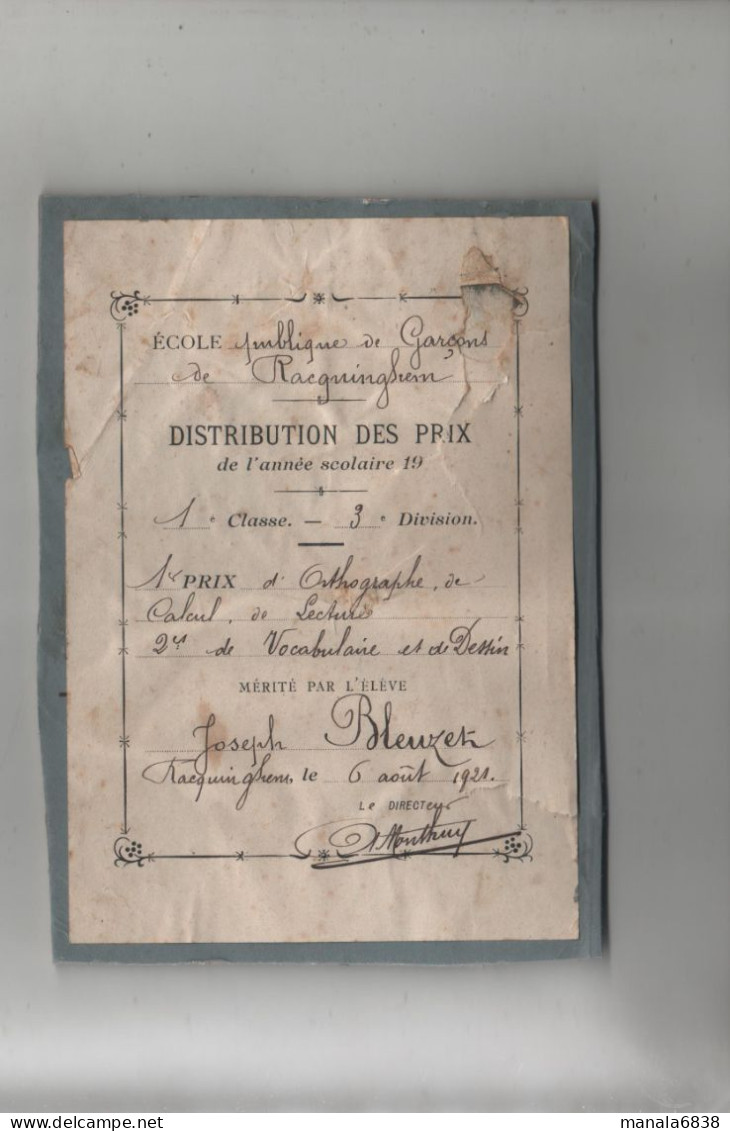 ÉCOLE publique de Garçons
de Racquinghem
DISTRIBUTION DES PRIX
de l'année scolaire 19
1e Classe. — 3e Division.
1er PRIX d'Orthographe, de
Calcul, de Lecture
2es de Vocabulaire et de Dessin
MÉRITÉ PAR L'ÉLÈVE
Joseph Bleuzet
Racquinghem, le 6 août 1921.
LE DIRECTeur
manala6838